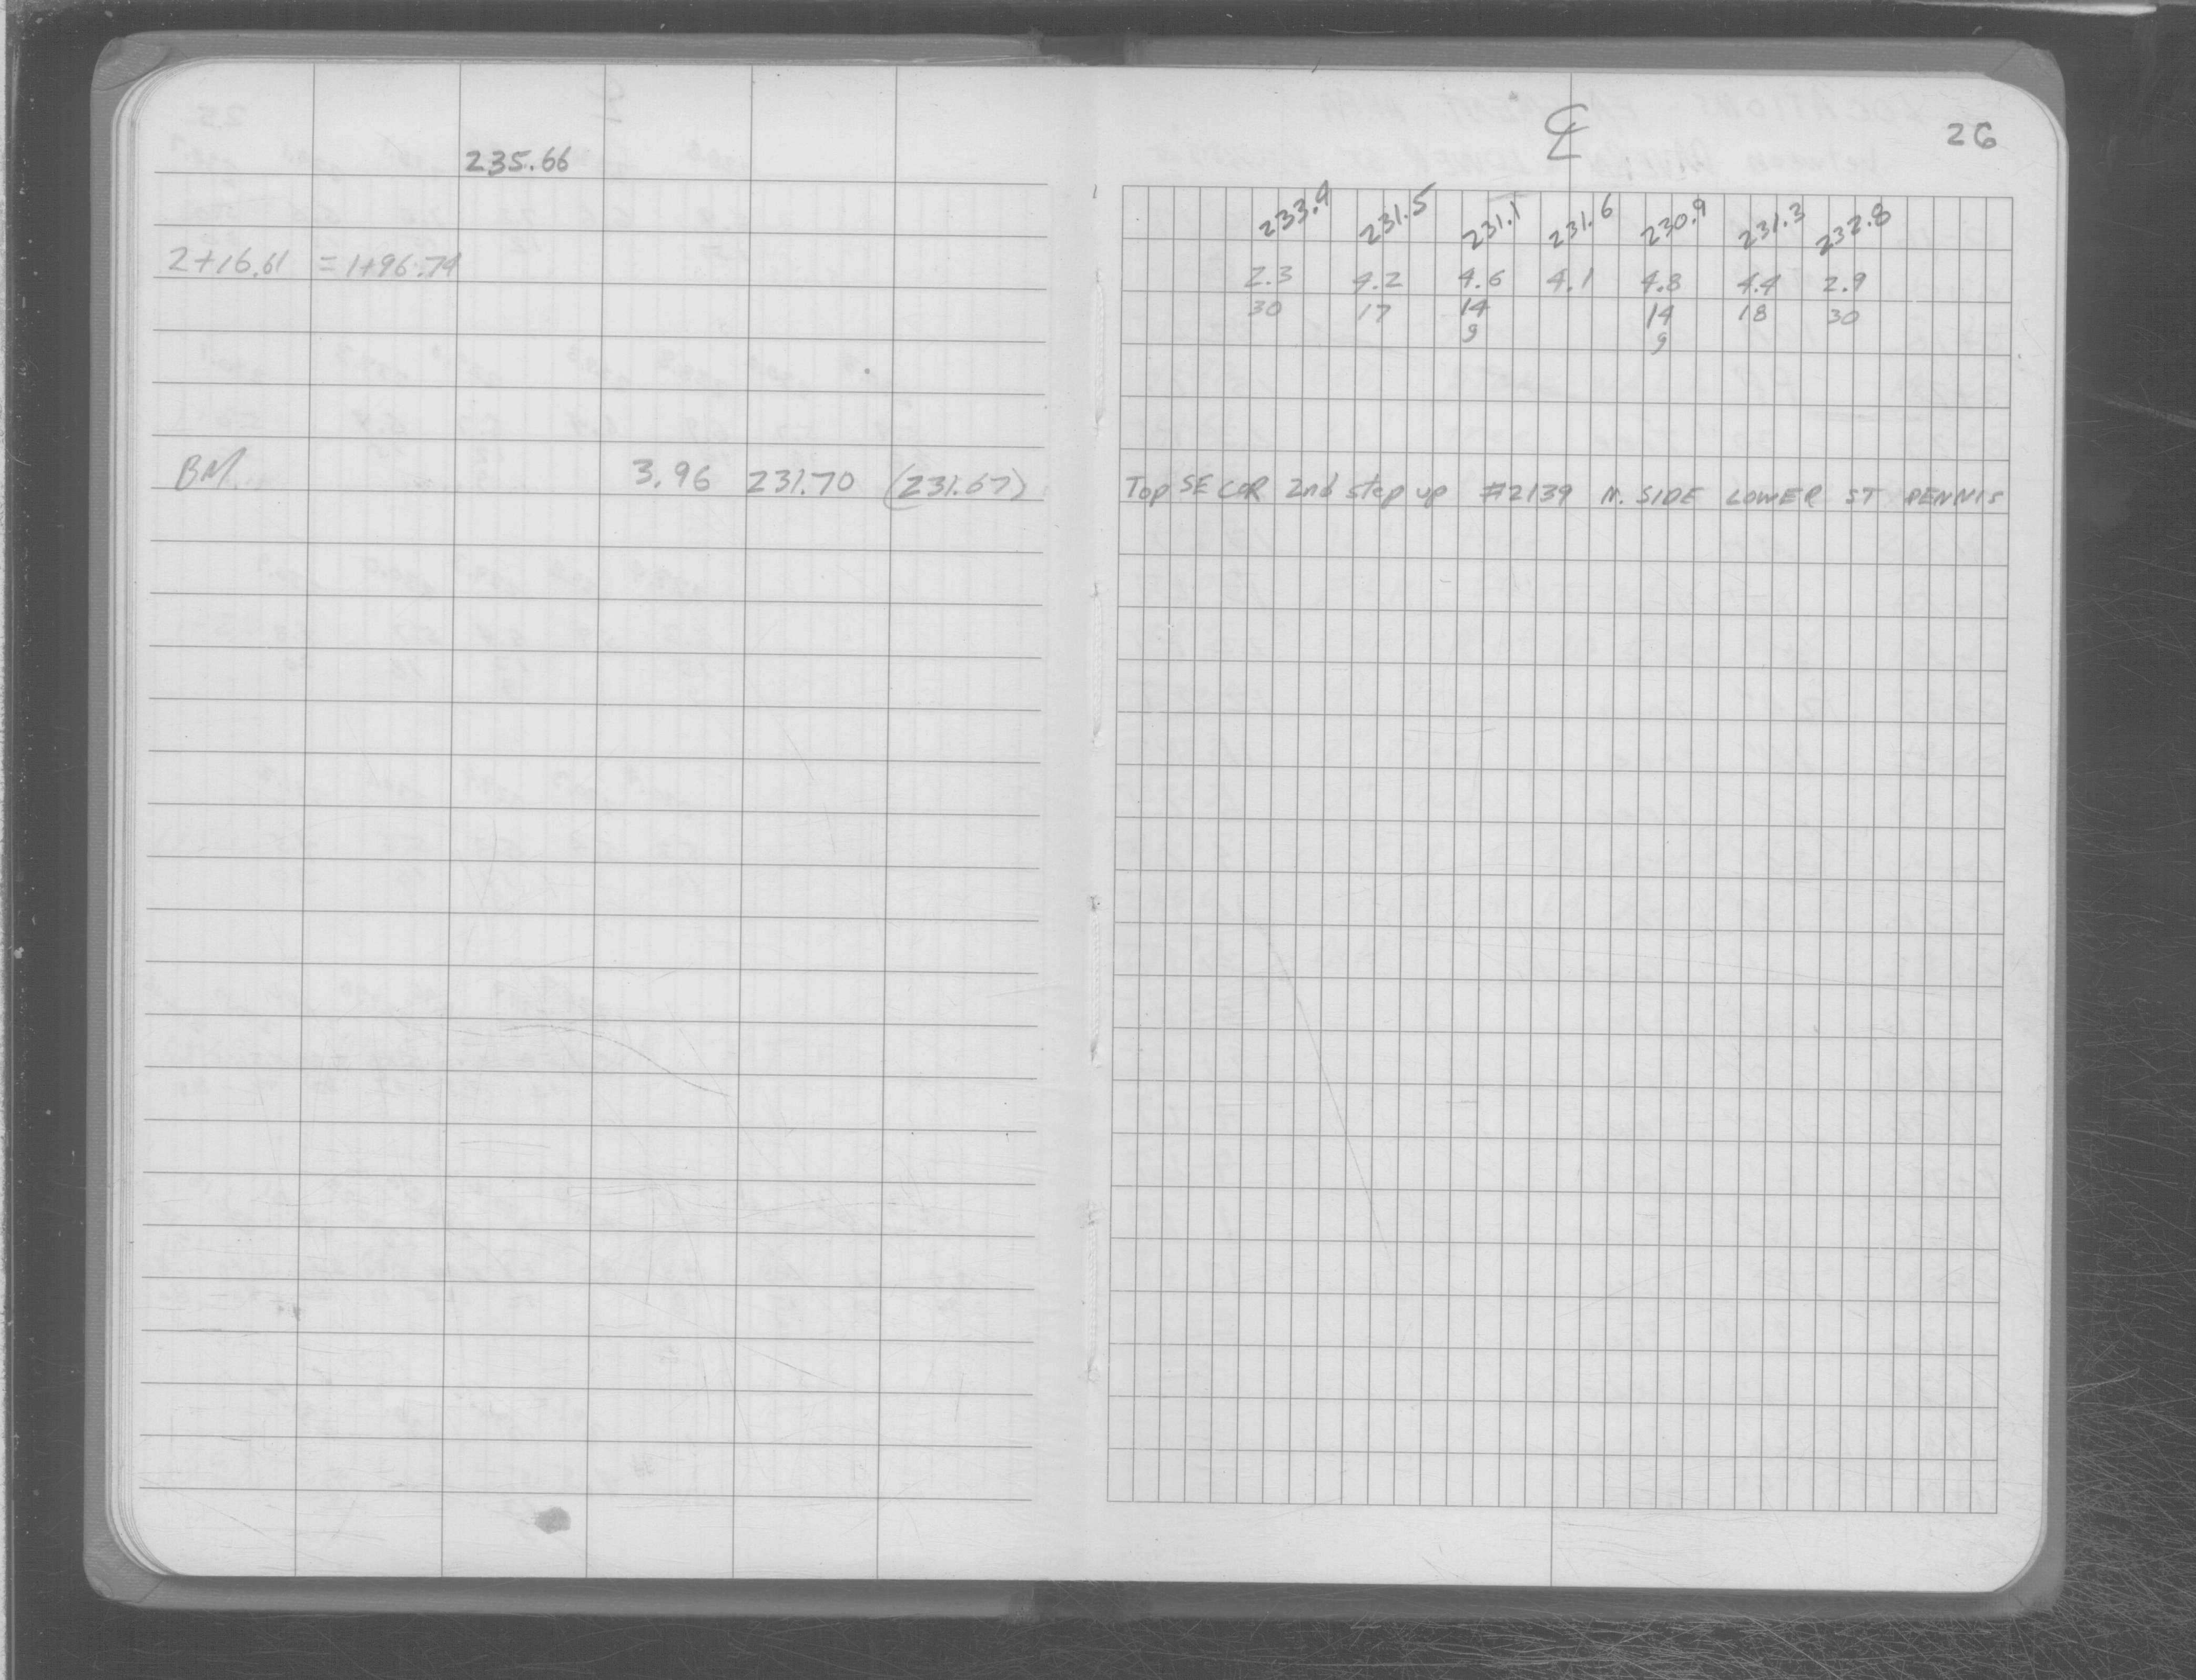 235.66
2+16.61 = 1+96.74
BM 3.96 231.70 (231.67)
℄ 26
233.4 231.5 231.1 231.6 230.9 231.3 232.8
2.3 4.2 4.6 4.1 4.8 4.4 2.9
30 17 14 14 18 30
9 9
Top SE COR 2nd step up #2139 N. SIDE LOWER ST DENNIS